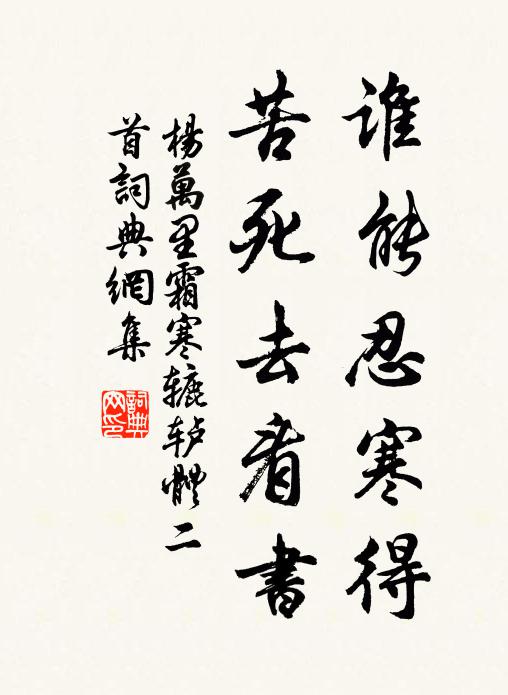 谁能忍寒得
苦死去看書
楊萬里霜寒辘轳體二
首詞典網集
詞典
网印